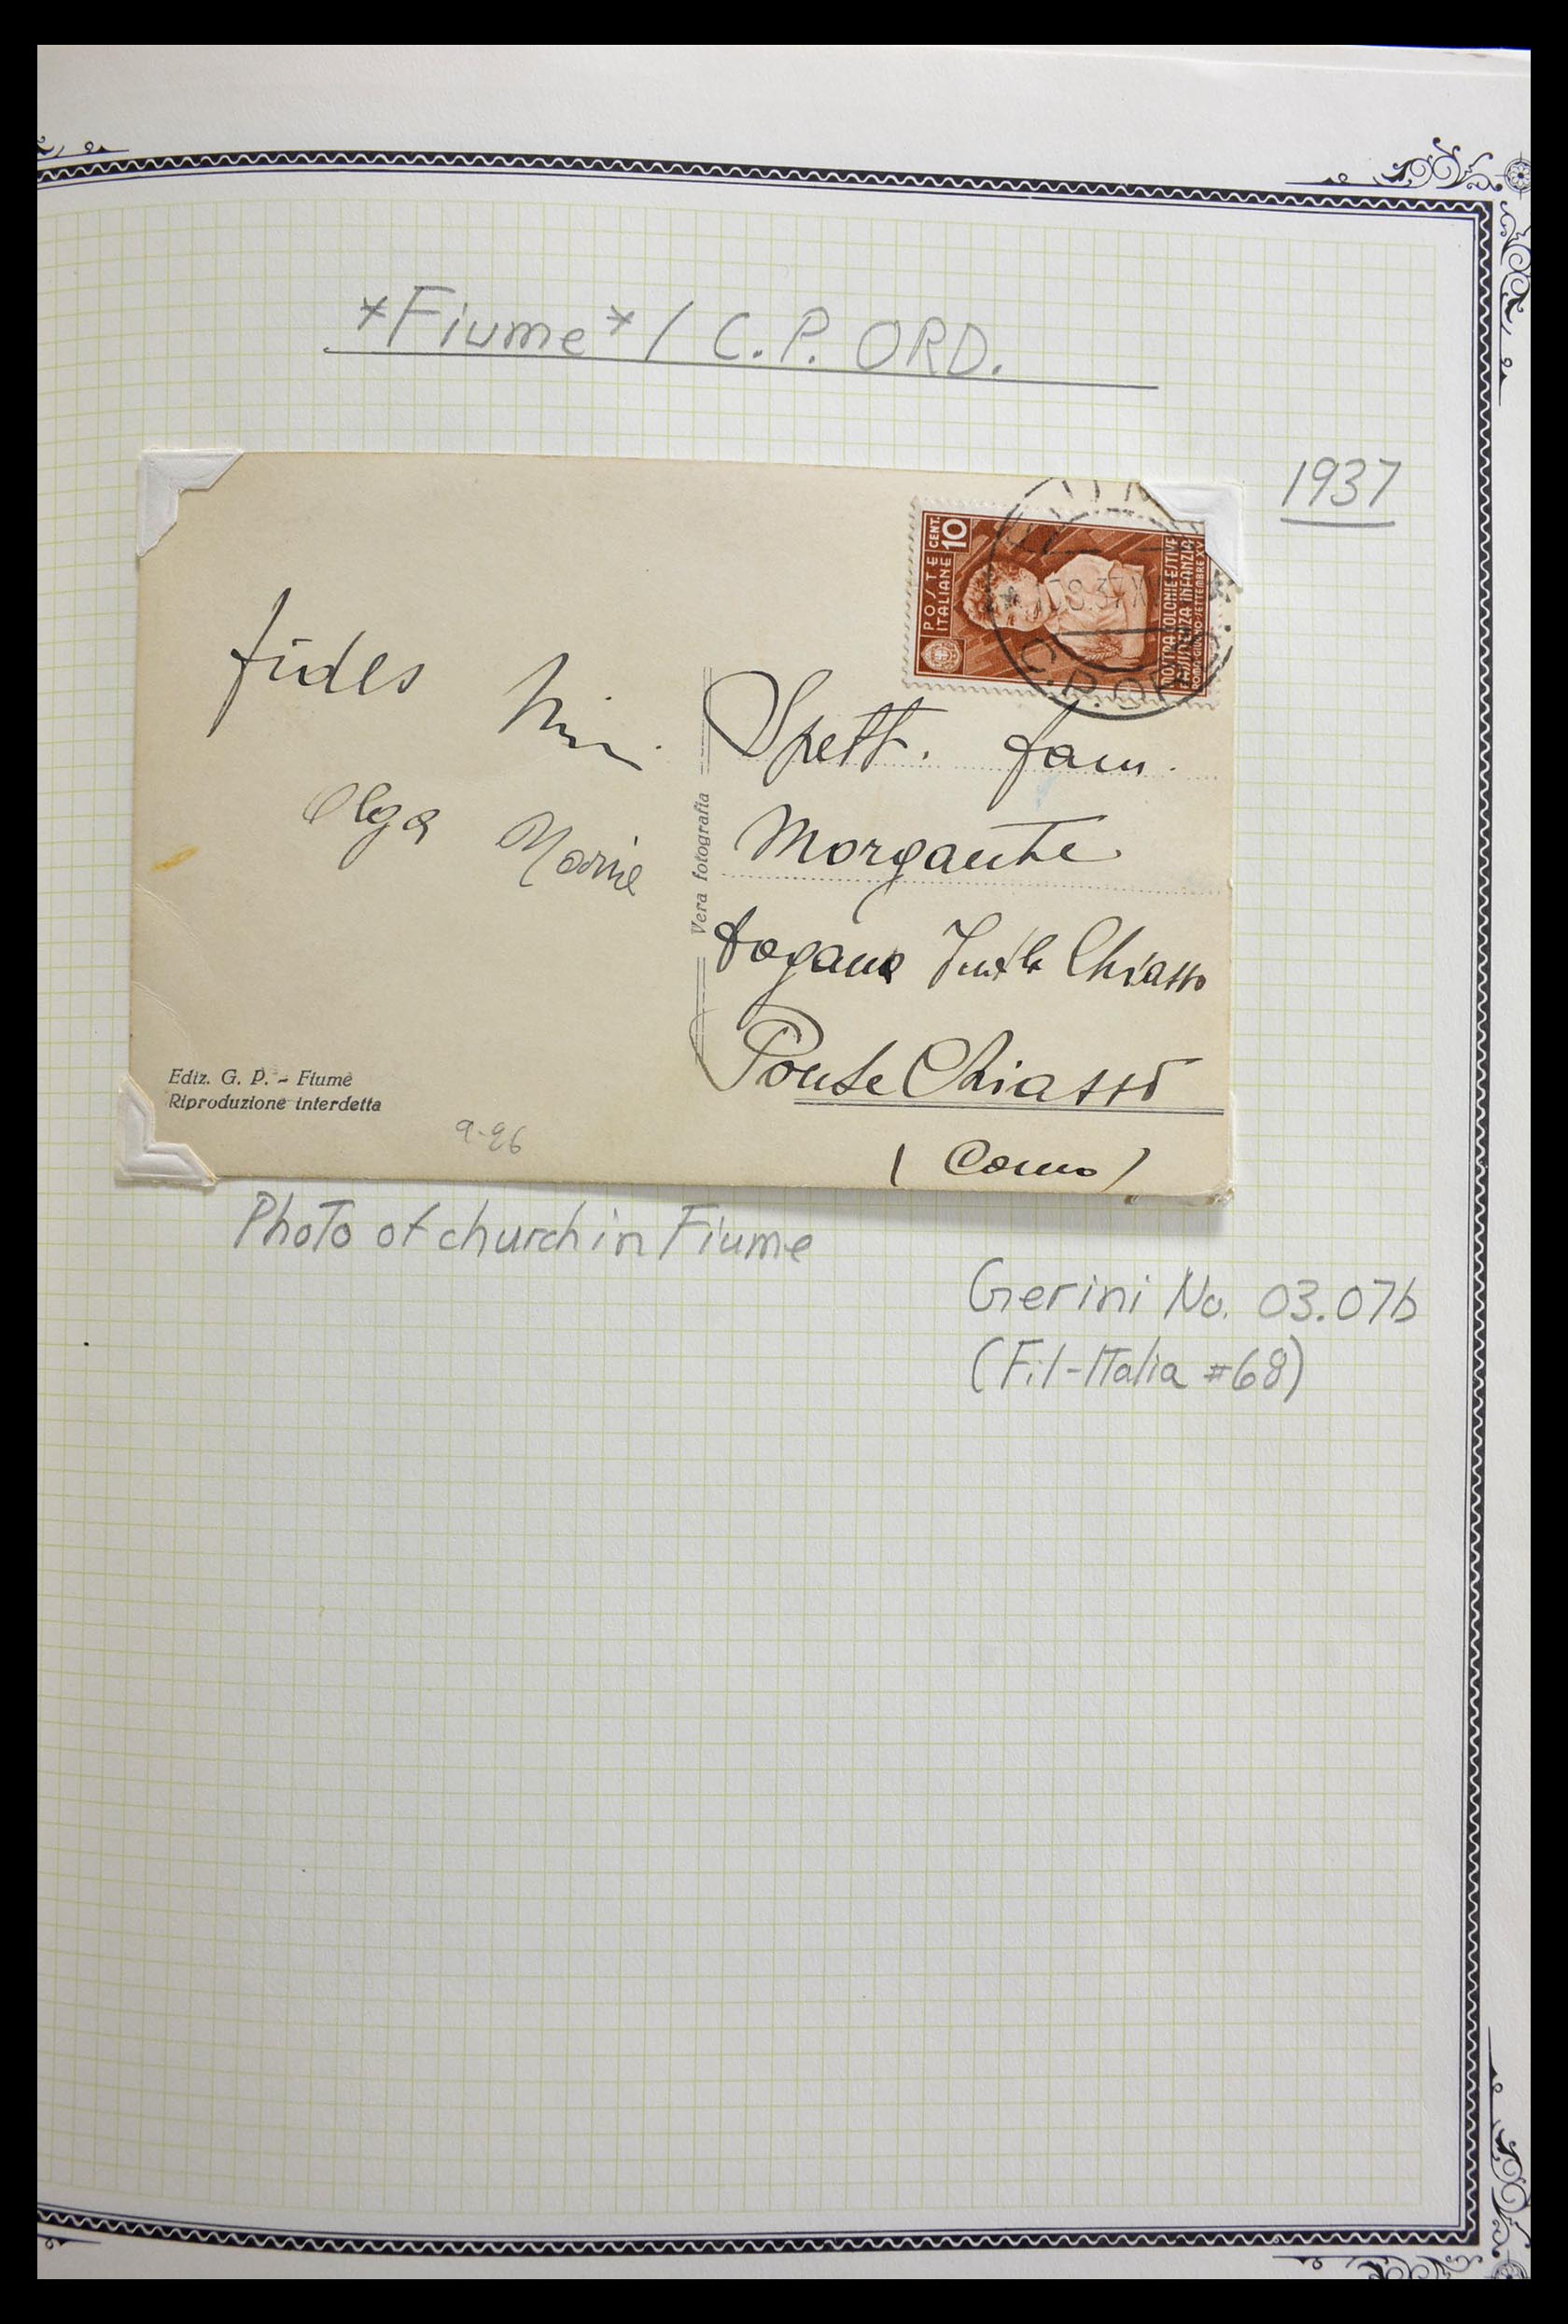 *Fiume* / C. P. ORD.
1937
POSTE ITALIANE
CENT. 10
MOSTRA COLONIE ESTIVE
E ASSISTENZA INFANZIA
ROMA GIUGNO-SETTEMBRE XV
.8.37.XV
C.P. OR
Olga
Spett. fam.
Morgante
dogana Chiasso
Ponte Chiasso
(Como)
Vera fotografia
Ediz. G. P. - Fiume
Riproduzione interdetta
9-96
Photo of church in Fiume
Gerini No. 03.07b
(Fil-Italia #68)